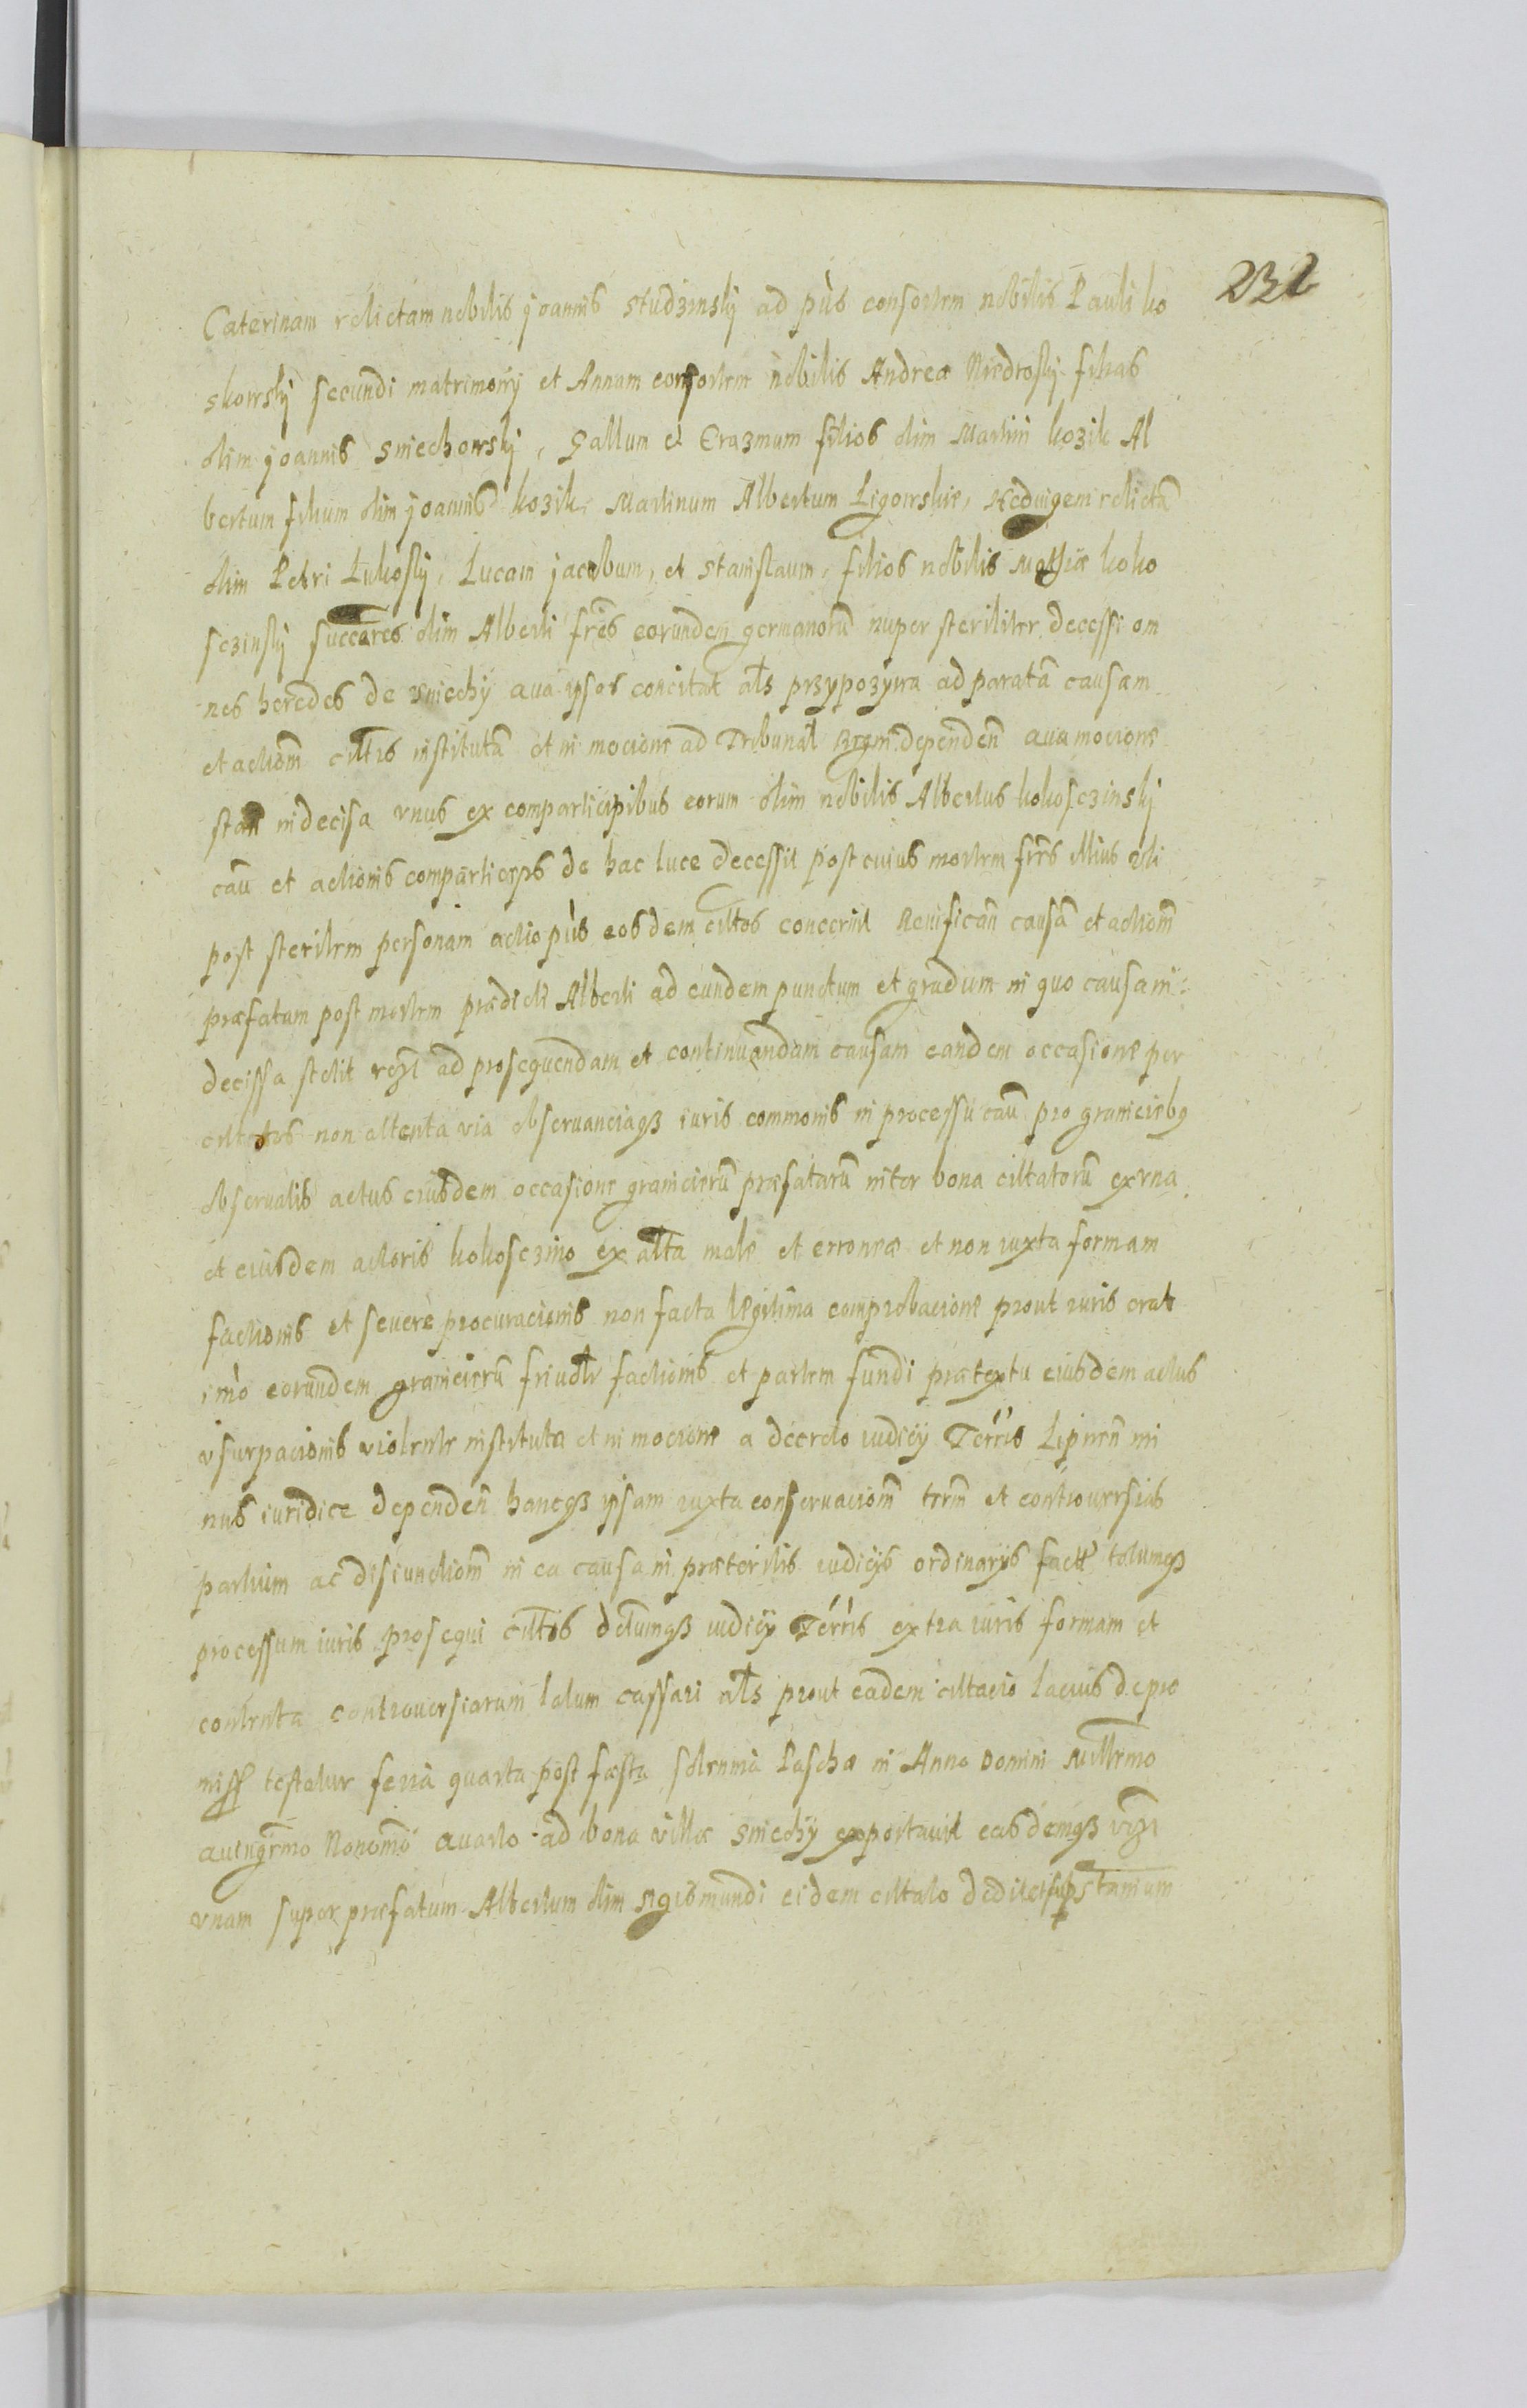 232
Caterinam relictam nobilis joannis studzinskj ad pñs consortem nobilis Pauli ko
skowskj secundi matrimonij et Annam consortem nobilis Andreæ Niedroskj filias
olim joannis sniechowskj, Gallum et Erazmum filios olim Martini kozik Al
bertum filium olim joannis kozik, Martinum Albertum Ligowskie, Hedvigem relictã
olim Petri Lukoskj, Lucam jacobum, et stanislaum, filios nobilis Mathiæ koko
sczinskj succẽores olim Alberti frẽs eorundem germanorũ nuper steriliter decessi om
nes heredes de sniechy qua ipsos concitat als przypozywa ad paratã causam
et actiom̃ cittis institutã et in mocione ad Tribunal Regni dependeñ qua mocione
stañ indecisa vnus ex comparticipibus eorum olim nobilis Albertus kokosczinskj
cau et actionis comparticeps de hac luce decessit post cuius mortem frẽs illius
post sterilem personam actio pñs eosdem cittos concernit Reuificañ causã et actiom̃
præfatam post mortem prædicti Alberti ad eundem punctum et gradum in quo causa in
decissa stetit ad prosequendam et continuandam causam eandem occasione per
non attenta via obseruanciaqz iuris commonis in processu cau pro graniciebq
obseruatis actus eiusdem occasione granicierũ præfatarũ inter bona cittatorũ ex vna
et eiusdem actoris kokosczino ex alta male et erroneæ et non iuxta formam
factionis et seuere procuracionis non facta legitima comprobacione prout iuris erat
imo eorundem granicierũ factionis et partem fundi prætextu eiusdem actus
vsurpacionis violente instituta et in mocione a decreto iudicij Terris Lipneñ mi
nus iuridice dependeñ hancqz ipsam iuxta conseruaciom̃ trm̃ et controuersias
partium ac disiunctiom̃ in ea causa in præteritis iudicijs ordinarijs fact totumqz
processum iuris prosequi cittis iudicij Terris extra iuris formam et
contenta controuersiarum latum cassari als prout eadem cittacio lacius de præ
miss testatur feria quarta post fæsta solennia Paschæ in Anno Domini Millemo
quingemo Nonomo quarto ad bona villæ sniechy exportauit easdemqz
vnam super præfatum Albertum olim sigismundi eidem cittato dedit